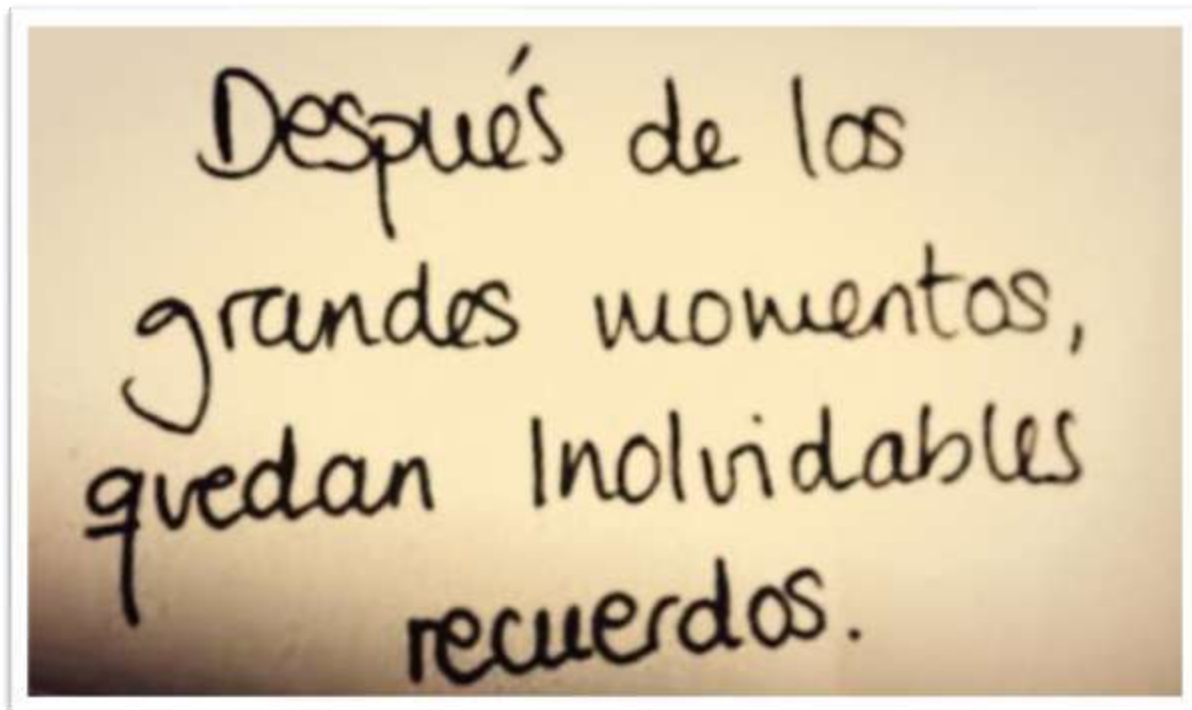 Después de los
grandes momentos,
quedan Inolvidables
recuerdos.